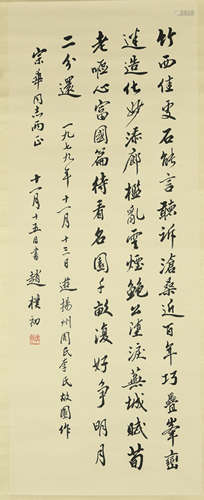 竹西佳史石能言聽訴滄桑近百年巧疊峯巒
迷造化妙添廊檻亂雲煙鮑公墮淚蕪城賦荀
老嘔心富國篇待看名園千畝復好爭明月
二分還
一九七九年十一月十三日遊揚州周氏李氏故園作
宗華同志兩正
十一月十五日書趙樸初